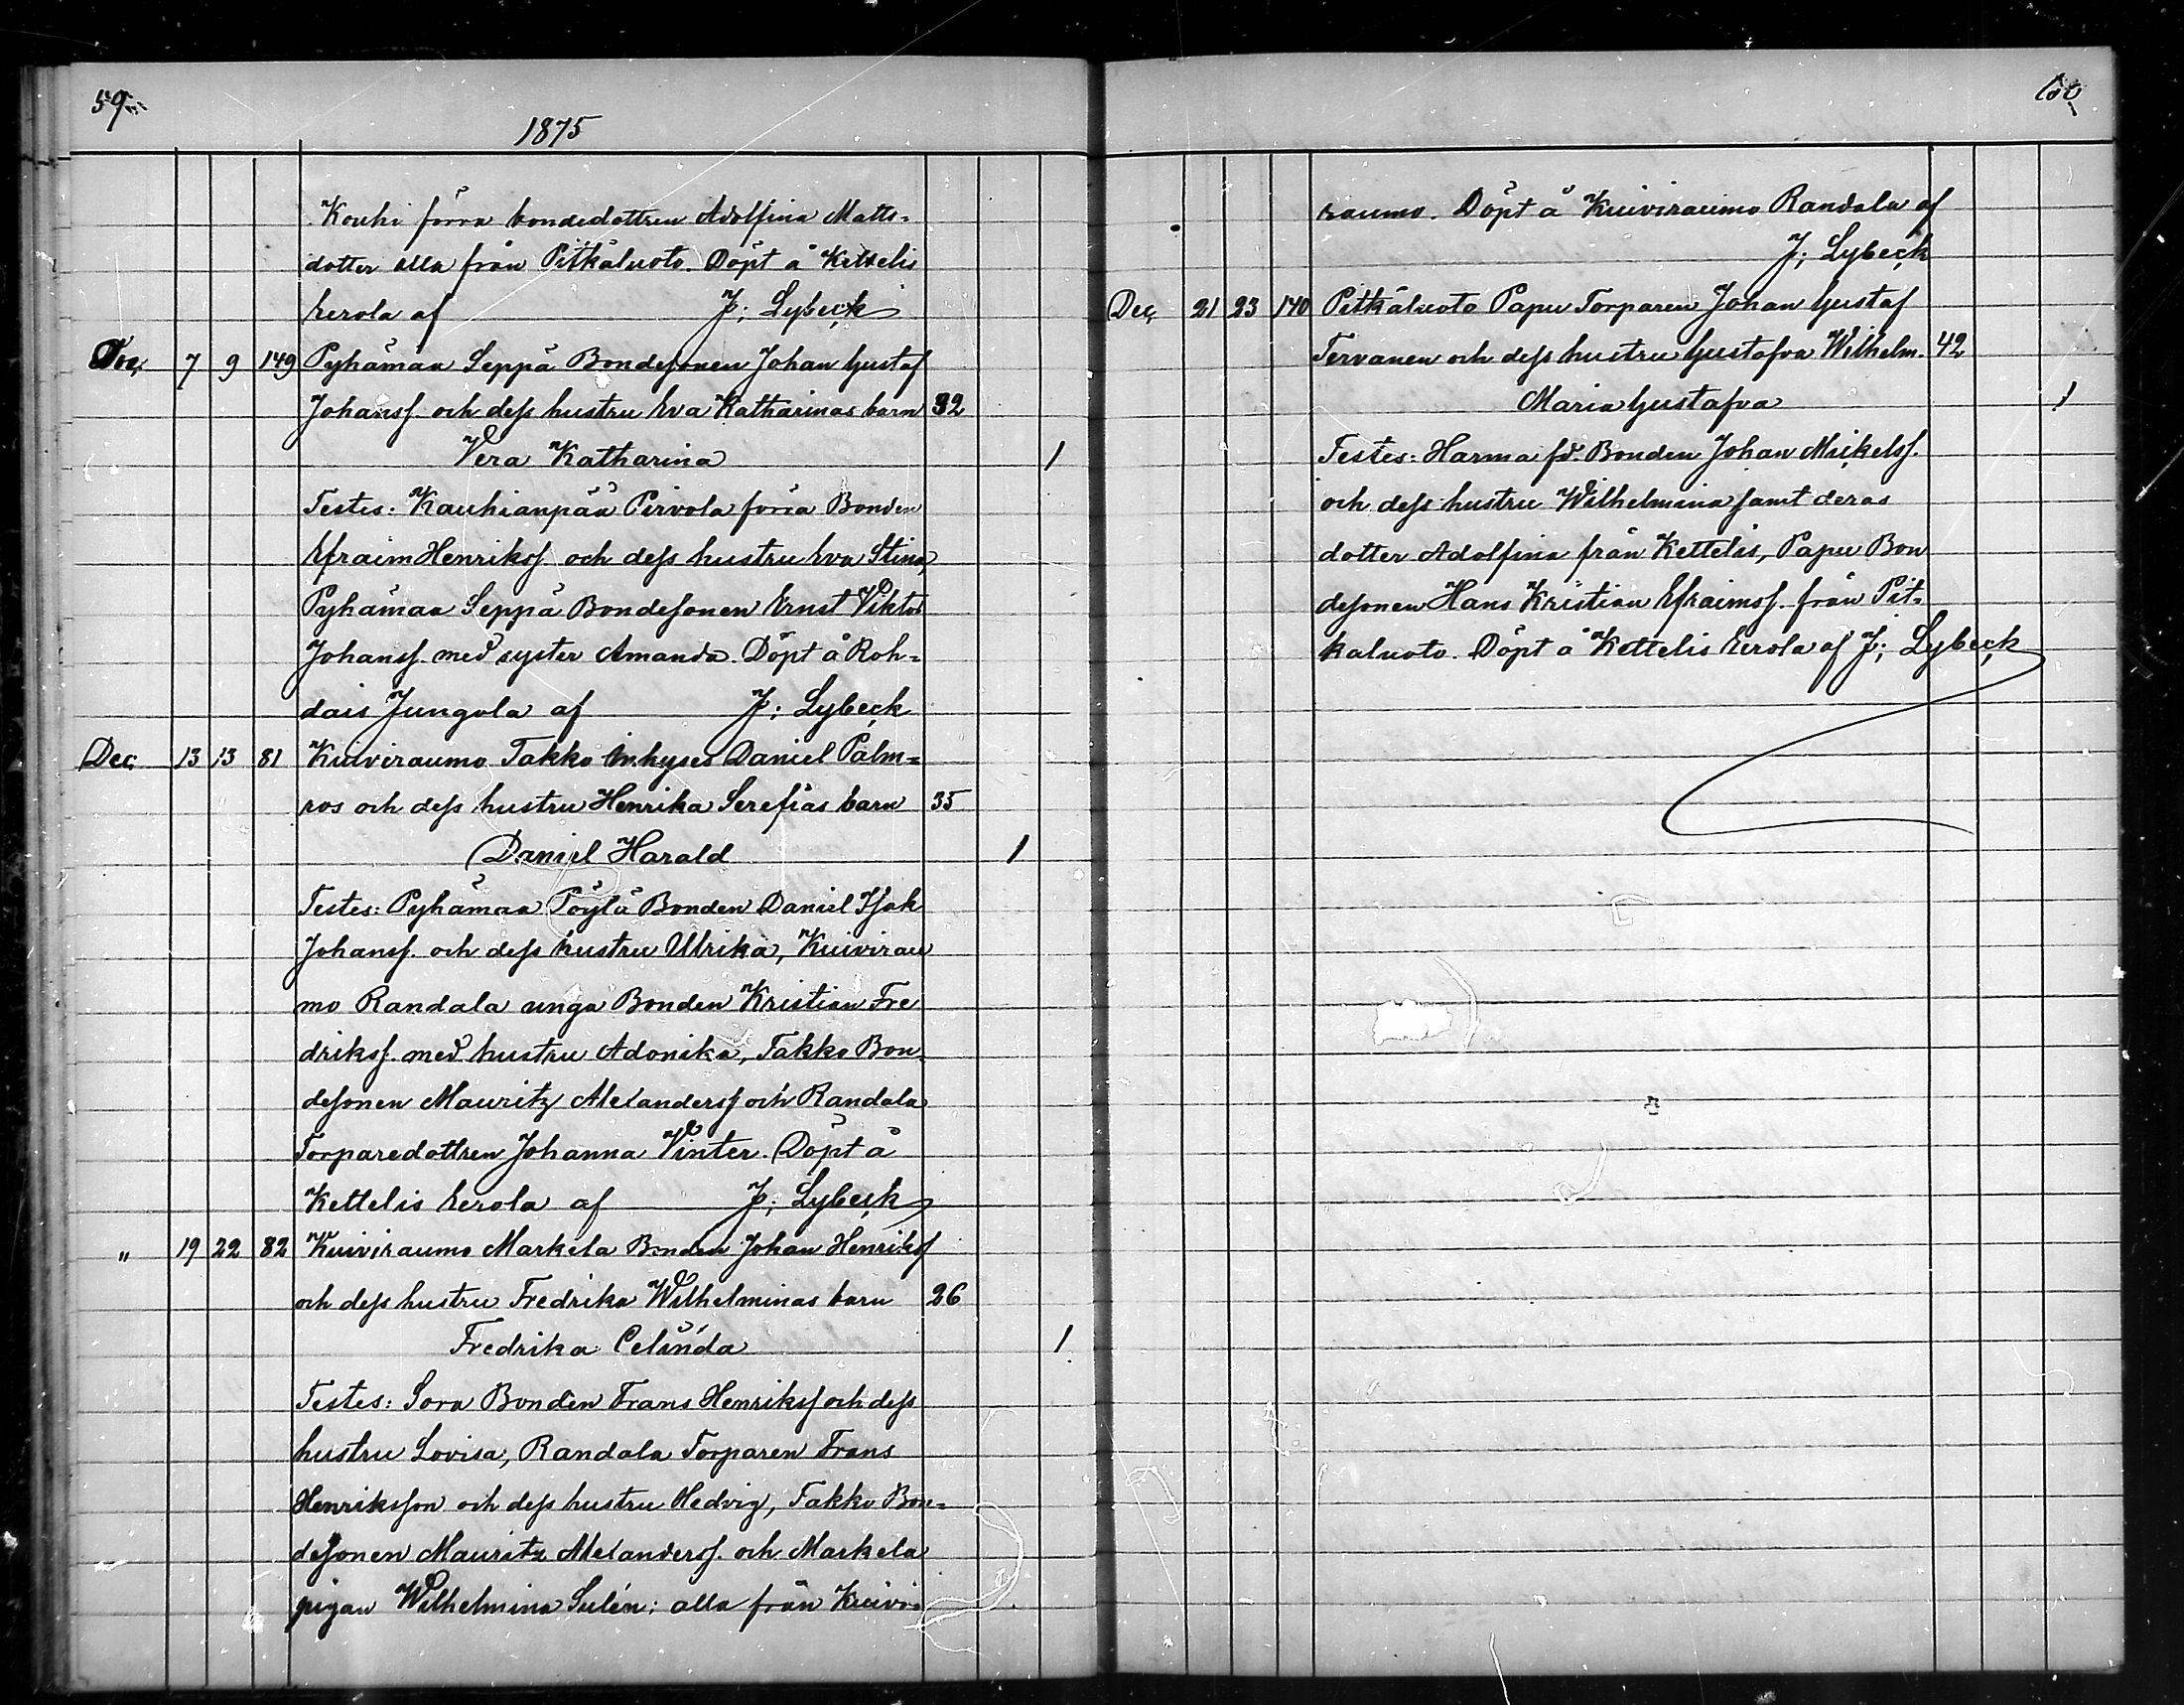 59.
1875
Kouhi förra bondedottren Adolfina Matts-
dotter alla från Pitkäluoto. Döpt å Kettelis
Eerola af J; Lybeck
Dec. 7 9 149 Pyhämaa Seppä Bondesonen Johan Gustaf
Johanss. och dess hustru Eva Katharinas barn 32
Vera Katharina 1
Testes: Kauhianpää Pirvola förra Bonden
Efraim Henrikss. och dess hustru Eva Stina,
Pyhämaa Seppä Bondesonen Ernst Viktor
Johanss. med syster Amanda. Döpt å Roh-
dais Jungola af J; Lybeck
Dec. 13 13 81 Kuiviraumo Takko Inhyses Daniel Palm-
ros och dess hustru Henrika Serefias barn 35
Daniel Harald 1
Testes: Pyhämaa Pöylä Bonden Daniel Isak
Johanss. och dess hustru Ulrika, Kuivirau
mo Randala unga Bonden Kristian Fre
drikss. med hustru Adonika, Takko Bon-
desonen Mauritz Alexanderss och Randala
Torparedottren Johanna Vinter. Döpt å
Kettelis Eerola af J; Lybeck
" 19 22 82 Kuiviraumo Markela Bonden Johan Henrikss
och dess hustru Fredrika Wilhelminas barn 26
Fredrika Celinda 1
Testes: Sora Bonden Frans Henrikss och dess
hustru Lovisa, Randala Torparen Frans
Henriksson och dess hustru Hedvig, Takko Bon-
desonen Mauritz Alexanderss. och Markela
pigan Wilhelmina Sulén; alla från Kuivi-
60
raumo. Döpt å Kuiviraumo Randala af
J; Lybeck
Dec. 21 23 140 Pitkäluoto Papu Torparen Johan Gustaf
Tervanen och dess hustru Gustafva Wilhelm. 42
Maria Gustafva 1
Testes: Harma fd. Bonden Johan Mickelss.
och dess hustru Wilhelmina samt deras
dotter Adolfina från Kettelis, Papu Bon
desonen Hans Kristian Efraimss. från Pit-
kaluoto. Döpt å Kettelis Eerola af J; Lybeck